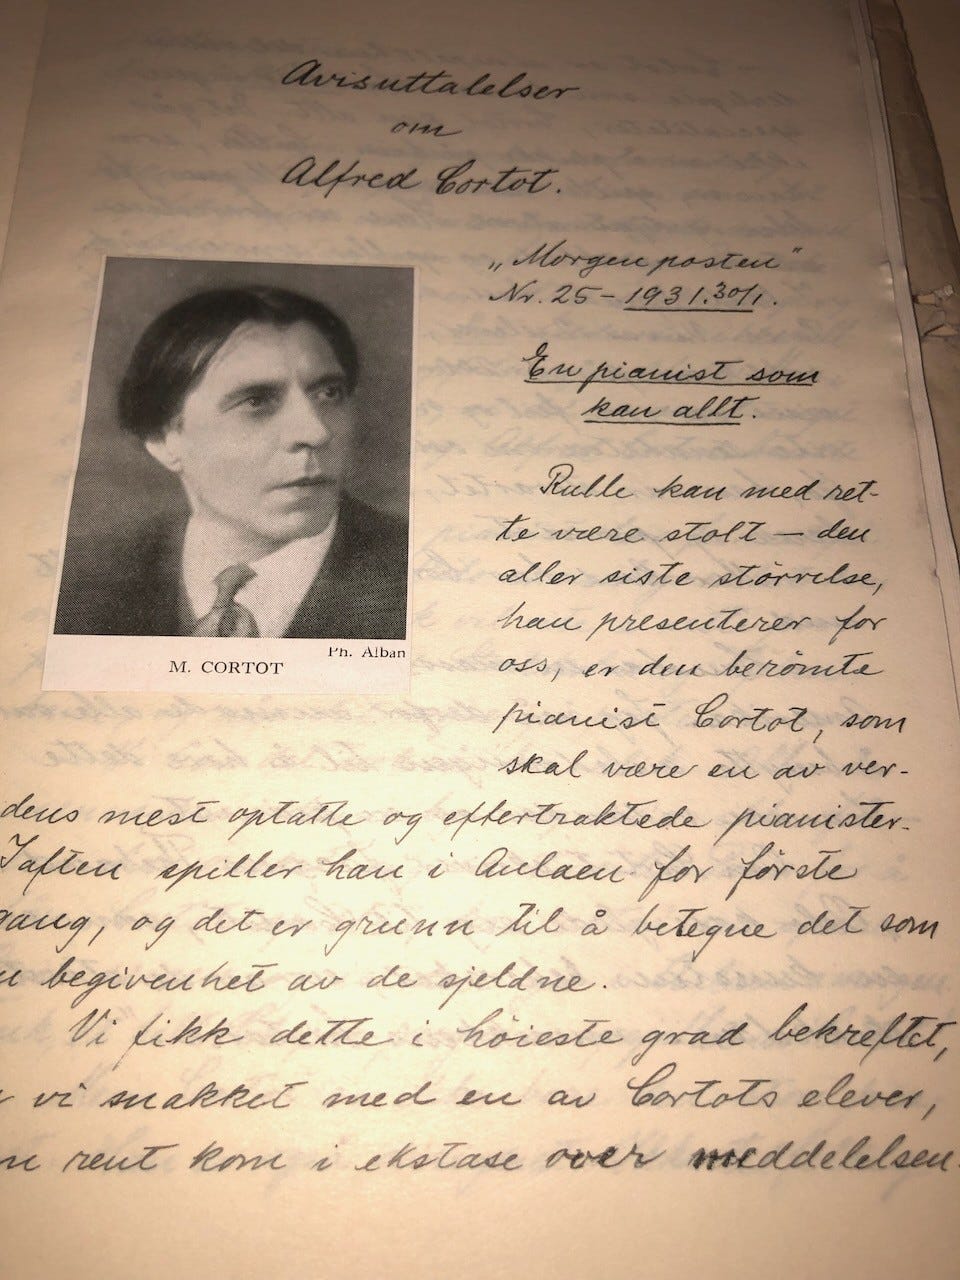 Avisuttalelser
om
Alfred Cortot.
„Morgenposten"
Nr. 25 – 1931.30/1.
En pianist som
kan allt.
Rulle kan med ret-
te være stolt — den
aller siste störrelse,
han presenterer for
oss, er den berömte
pianist Cortot, som
skal være en av ver-
dens mest optatte og eftertraktede pianister.
Iaften spiller han i Aulaen for förste
gang, og det er grunn til å betegne det som
begivenhet av de sjeldne.
Vi fikk dette i höieste grad bekreftet,
vi snakket med en av Cortots elever,
rent kom i ekstase over meddelelsen.
Ph. Alban
M. CORTOT